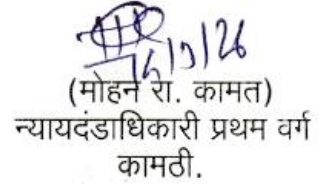 (मोहन रा. कामत)
न्यायदंडाधिकारी प्रथम वर्ग
कामठी.